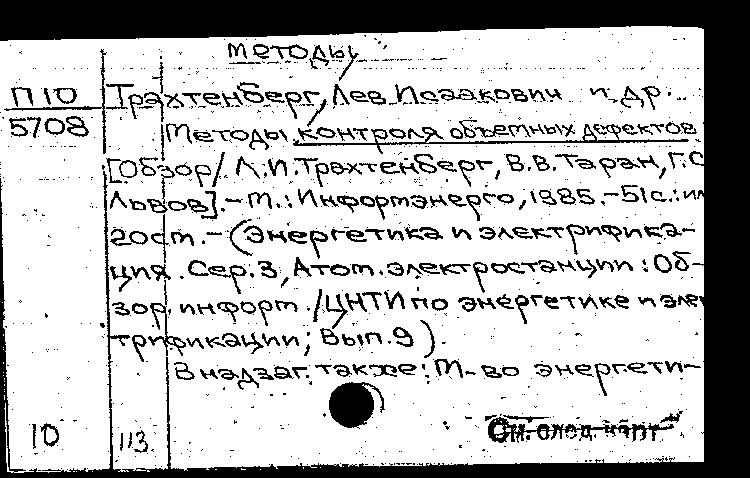 методы
П10 Трахтенберг, Лев Исаакович и др.
5708 Методы контроля объемных дефектов
[Обзор / Л.И.Трахтенберг, В.В.Таран, Г.С
Львов].-М.:Информэнерго,1985.-51с.:ил
20см.-(Энергетика и электрифика-
ция. Сер.3, Атом. электростанции: Об-
зор. информ. /ЦНТИ по энергетике и элек
трификации; Вып.9).
В надзаг. также: М-во энергети-
10 113 См. след. карт